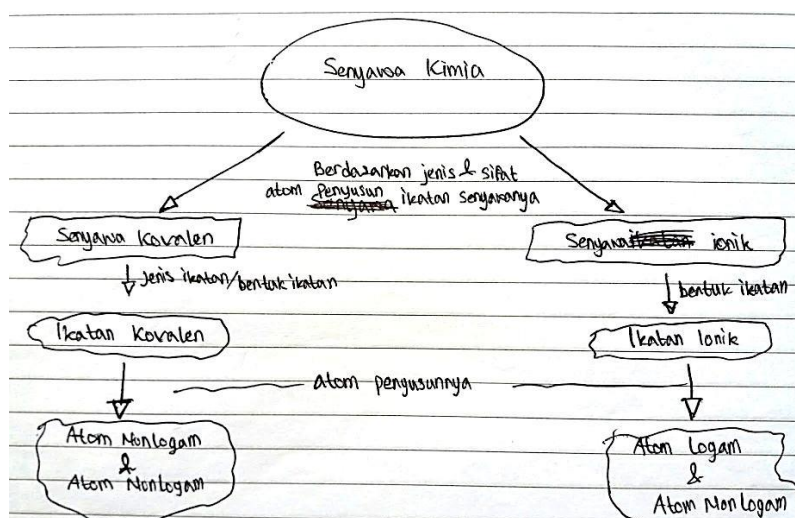 Senyawa Kimia
Berdasarkan jenis & sifat
atom Penyusun ikatan senyawanya
Senyawa Kovalen
Senyawa ionik
jenis ikatan/bentuk ikatan
bentuk ikatan
Ikatan Kovalen
Ikatan Ionik
atom pengusunnya
Atom Nonlogam
&
Atom Nonlogam
Atom Logam
&
Atom Nonlogam